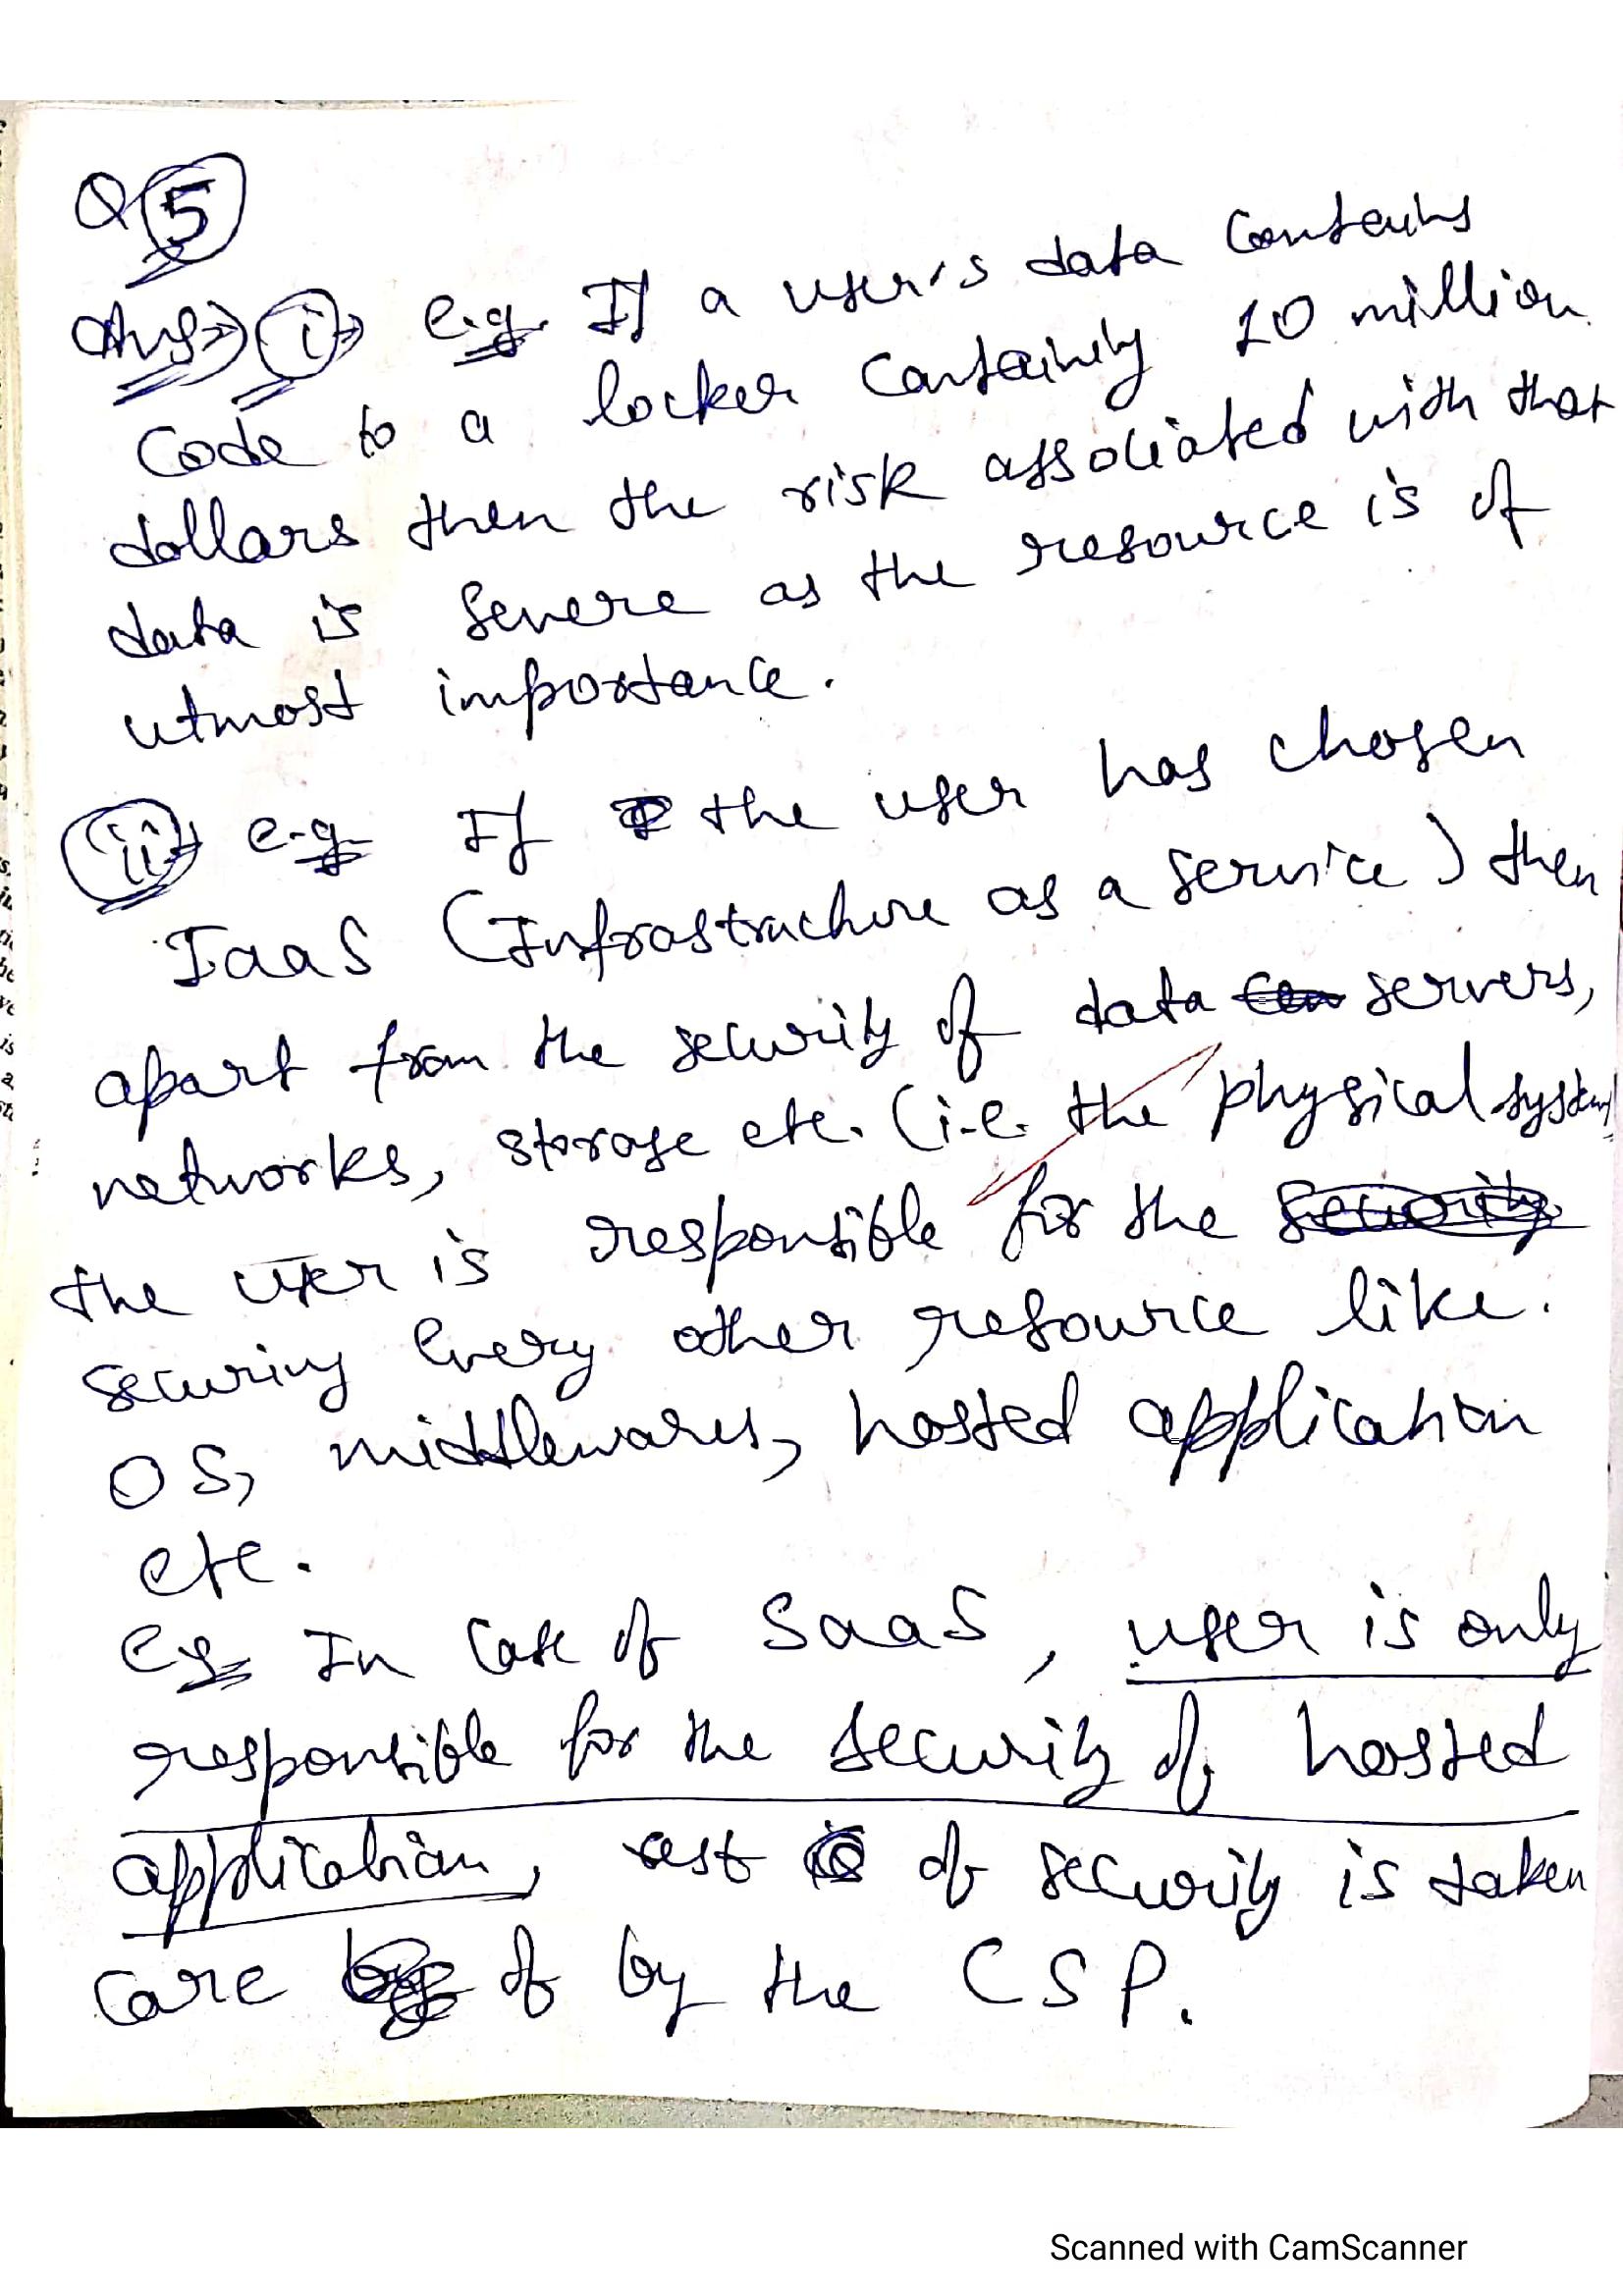 Q 5
Ans → i → e.g. If a user's data contains
code to a locker containing 10 million
dollars then the risk associated with that
data is severe as the resource is of
utmost importance.
ii → e.g. If the user has chosen
IaaS (Infrastructure as a service) then
apart from the security of data servers,
networks, storage etc. (i.e. the physical system
the user is responsible for the security
securing every other resource like.
OS, middlewares, hosted application
etc.
eg In case of SaaS, user is only
responsible for the security of hosted
application, rest of security is taken
care of by the CSP.
Scanned with CamScanner